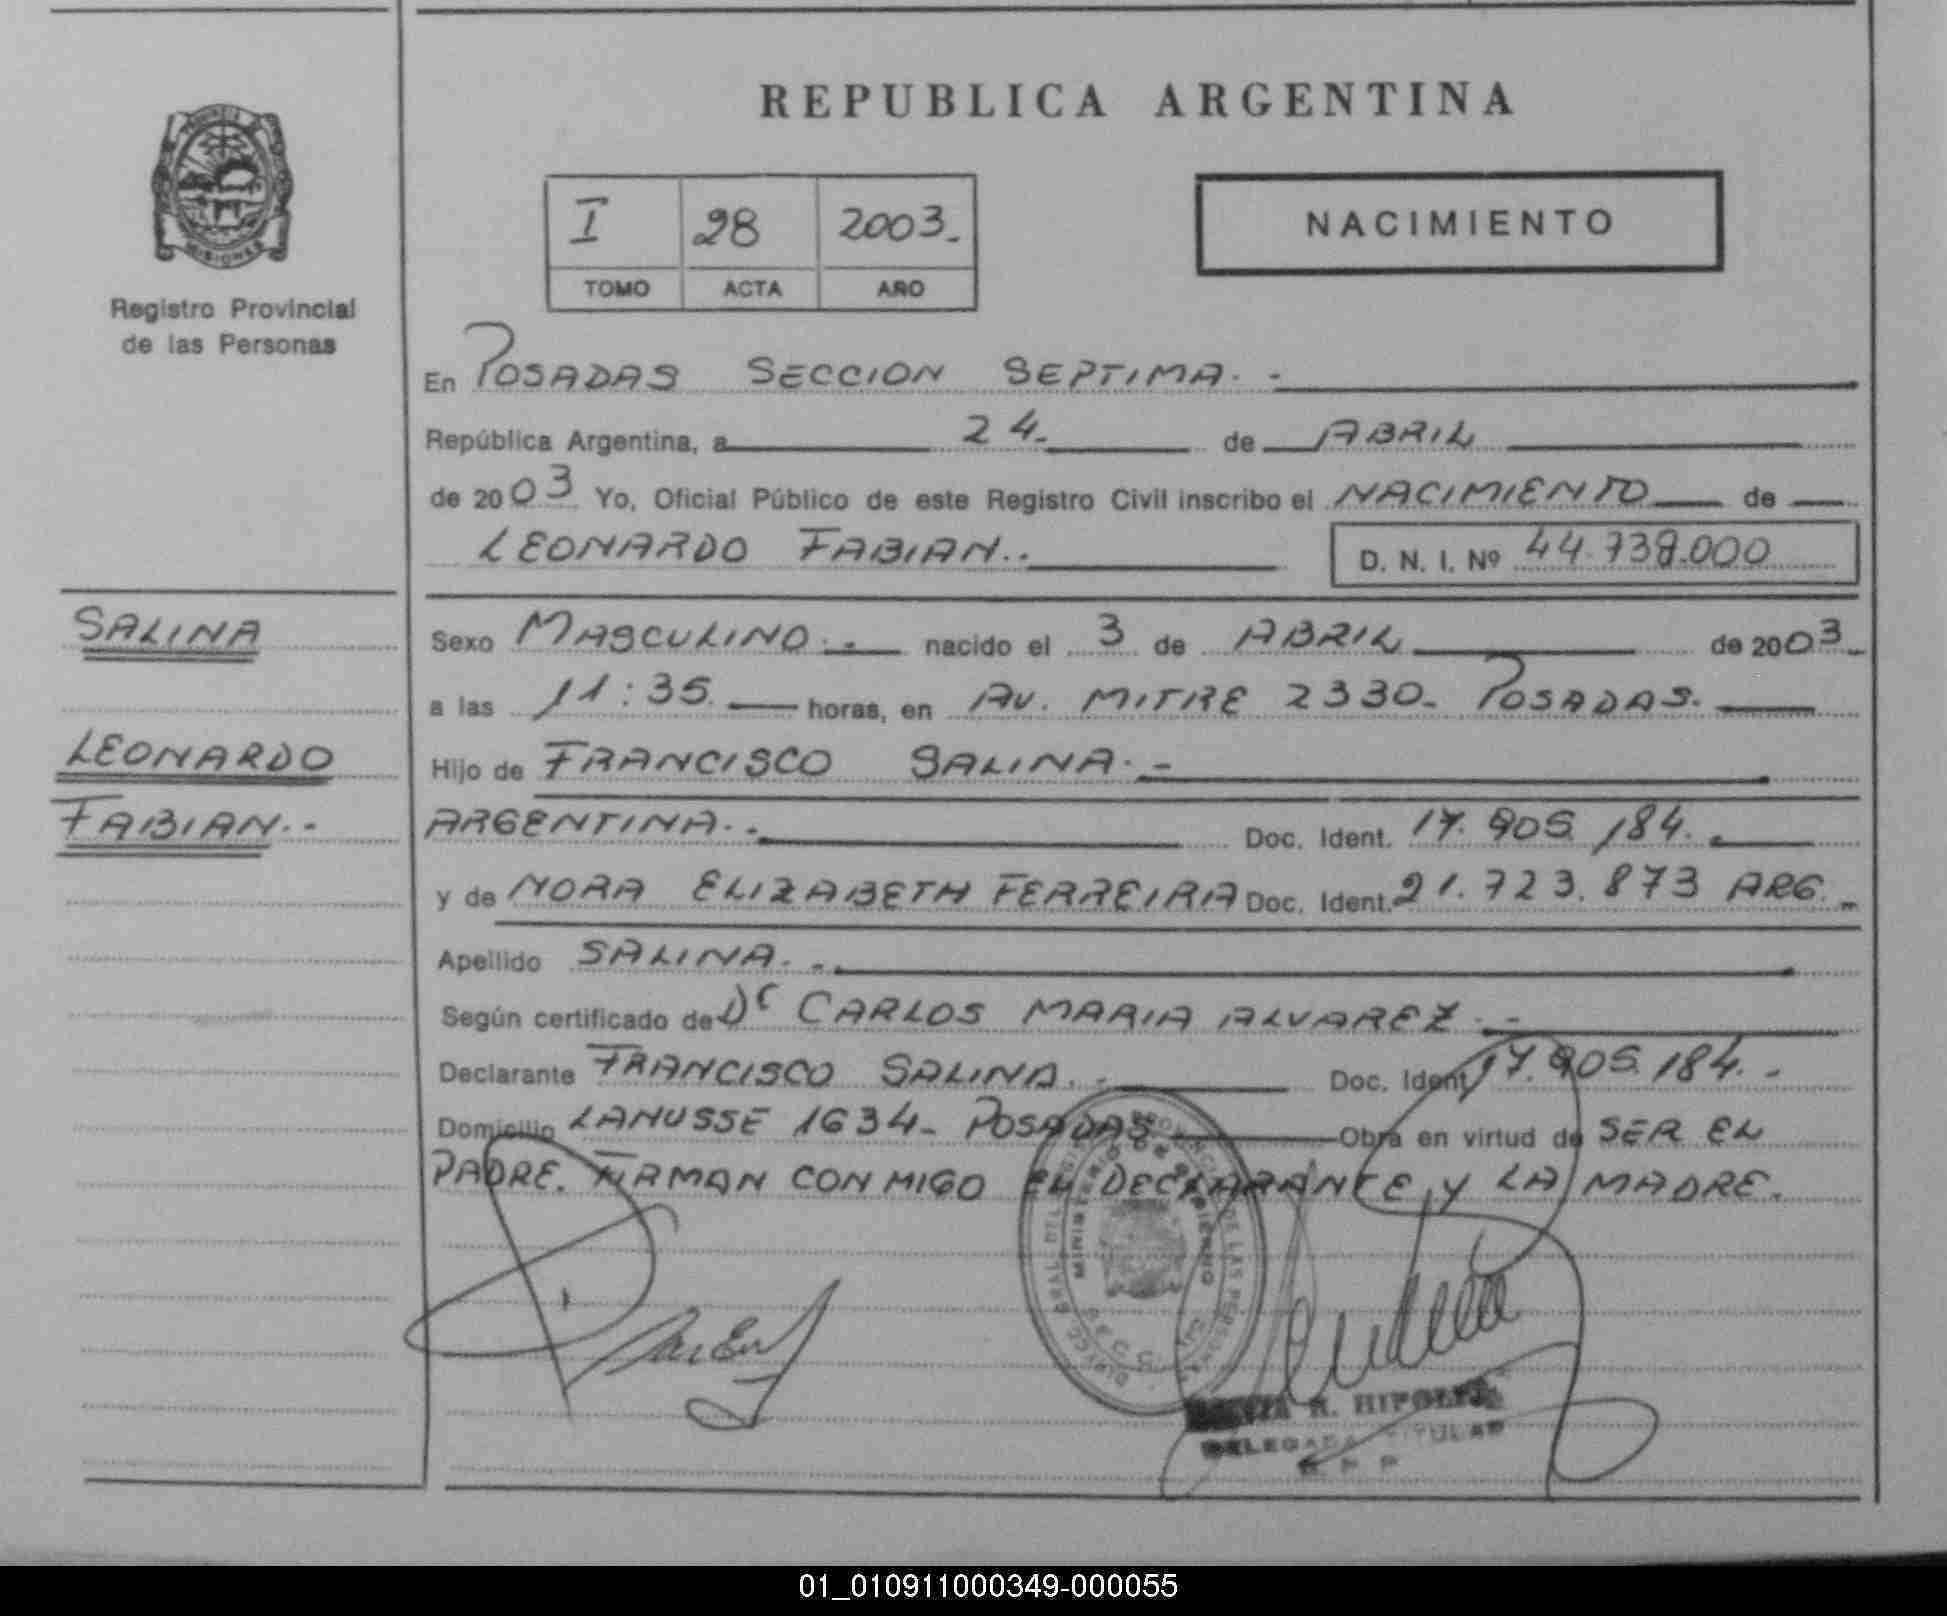 REPUBLICA ARGENTINA
PROVINCIA DE
MISIONES
Registro Provincial
de las Personas
I 28 2003.-
TOMO ACTA AÑO
NACIMIENTO
En POSADAS SECCION SEPTIMA.-
República Argentina, a 24- de ABRIL
de 2003 Yo, Oficial Público de este Registro Civil inscribo el NACIMIENTO de
LEONARDO FABIAN.- D. N. I. Nº 44.738.000
SALINA
LEONARDO
FABIAN.-
Sexo MASCULINO.- nacido el 3 de ABRIL de 2003.-
a las 11:35. horas, en AV. MITRE 2330- POSADAS.
Hijo de FRANCISCO SALINA.-
ARGENTINA.- Doc. Ident. 17.905.184.
y de NORA ELIZABETH FERREIRA Doc. Ident. 21.723.873 ARG.-
Apellido SALINA.-
Según certificado de Dr CARLOS MARIA ALVAREZ.-
Declarante FRANCISCO SALINA.- Doc. Ident. 17.905.184.-
Domicilio LANUSSE 1634- POSADAS Obra en virtud de SER EL
PADRE. FIRMAN CONMIGO EL DECLARANTE Y LA MADRE.
MINISTERIO DE GOBIERNO
R. HIPOLITO
DELEGADA TITULAR
R. P. P.
01_010911000349-000055